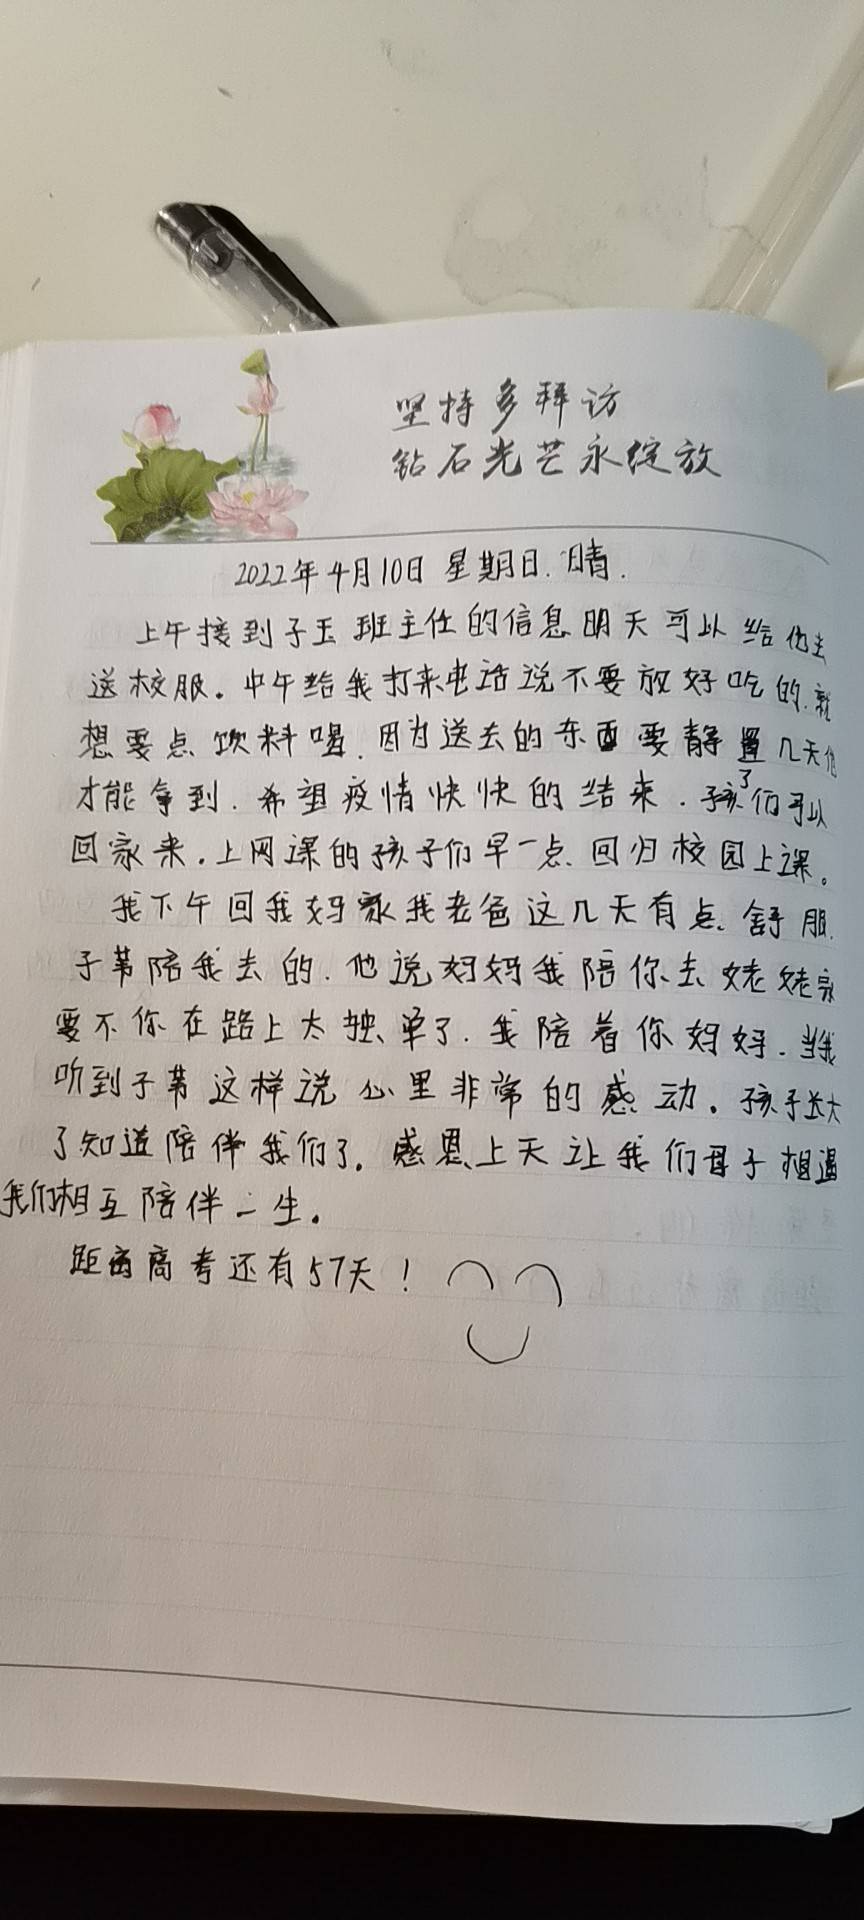 坚持多拜访
钻石光芒永绽放
2022年4月10日 星期日.晴.
上午接到子玉班主任的信息明天可以给他去
送校服。中午给我打来电话说不要放好吃的.就
想要点饮料喝.因为送去的东西要静置几天他
才能拿到.希望疫情快快的结束.孩子们可以
回家来.上网课的孩子们早一点回归校园上课。
我下午回我妈家我老爸这几天有点.舒服.
子苇陪我去的.他说妈妈我陪你去姥姥家
要不你在路上太独单了.我陪着你妈妈.当我
听到子苇这样说心里非常的感动。孩子长大
了知道陪伴我们了。感恩上天让我们母子相遇
我们相互陪伴一生。
距离高考还有57天!